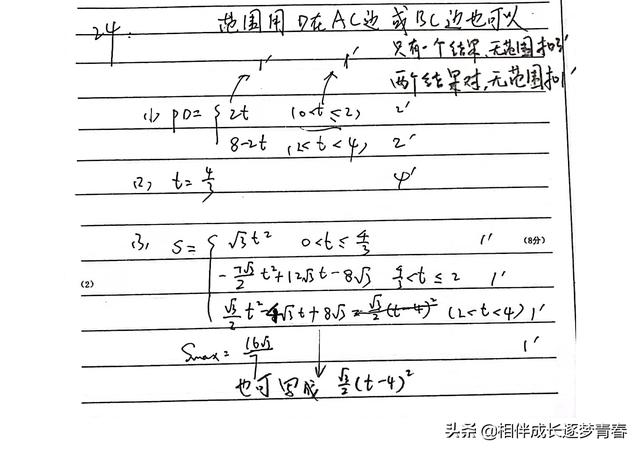 24.
范围用 D在AC边 或BC边也可以
只有一个结果,无范围扣3'
两个结果对,无范围扣1'
1' 1'
(1) PD= { 2t (0<t≤2) 2'
8-2t (2<t<4) 2'
(2) t=4/3 4'
(3) S= { √3t² 0<t≤4/3 1' (8分)
(2) -7√3/2 t²+12√3t-8√3 4/3<t≤2 1'
√3/2 t²-4√3t+8√3=√3/2(t-4)² (2<t<4) 1'
Smax=16√3/7 1'
也可写成 √3/2(t-4)²
头条 @相伴成长逐梦青春